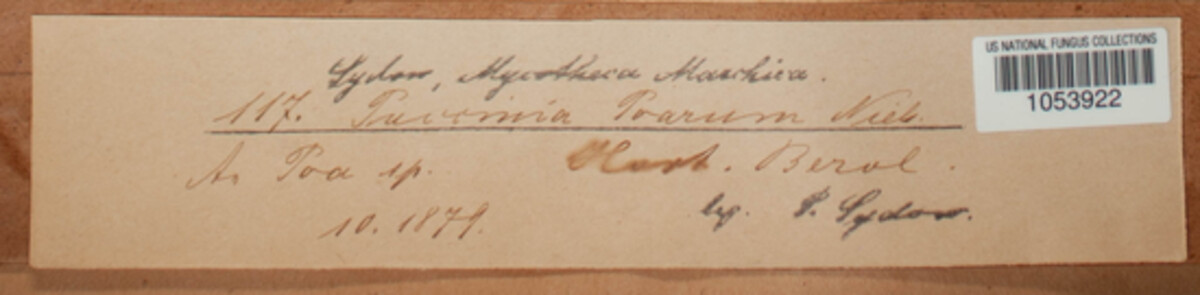 US NATIONAL FUNGUS COLLECTIONS
1053922
Sydow, Mycotheca Marchica.
117. Puccinia Poarum Niels.
A. Poa sp. Hort. Berol.
10. 1879. leg. P. Sydow.